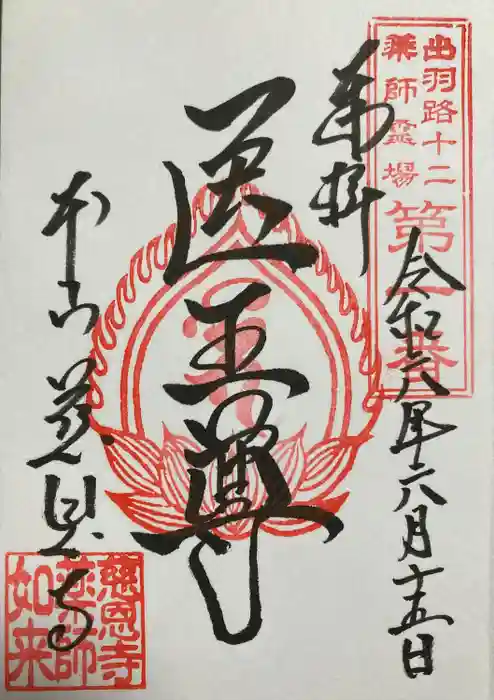 出羽路十二
薬師霊場
第一番
奉拝
令和六年六月十五日
医王尊
本山慈恩寺
慈恩寺
薬師
如来